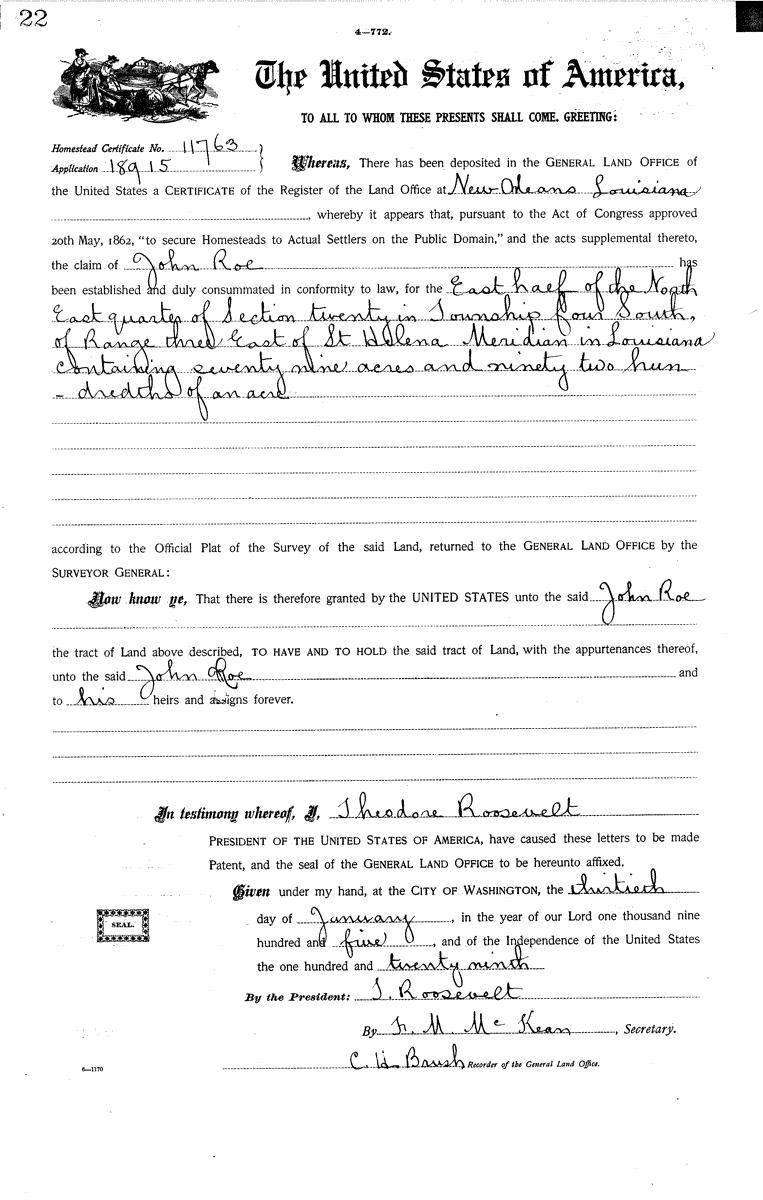 22
4—772.
The United States of America,
TO ALL TO WHOM THESE PRESENTS SHALL COME, GREETING:
Homestead Certificate No. 11763
Application 18915
Whereas, There has been deposited in the GENERAL LAND OFFICE of
the United States a CERTIFICATE of the Register of the Land Office at New Orleans Louisiana
, whereby it appears that, pursuant to the Act of Congress approved
20th May, 1862, “to secure Homesteads to Actual Settlers on the Public Domain,” and the acts supplemental thereto,
the claim of John Roe has
been established and duly consummated in conformity to law, for the East half of the North
East quarter of Section twenty in Township four South,
of Range three East of St Helena Meridian in Louisiana
containing seventy nine acres and ninety two hun
- dredths of an acre
according to the Official Plat of the Survey of the said Land, returned to the GENERAL LAND OFFICE by the
SURVEYOR GENERAL:
Now know ye, That there is therefore granted by the UNITED STATES unto the said John Roe
the tract of Land above described, TO HAVE AND TO HOLD the said tract of Land, with the appurtenances thereof,
unto the said John Roe and
to his heirs and assigns forever.
In testimony whereof, I, Theodore Roosevelt
PRESIDENT OF THE UNITED STATES OF AMERICA, have caused these letters to be made
Patent, and the seal of the GENERAL LAND OFFICE to be hereunto affixed.
Given under my hand, at the CITY OF WASHINGTON, the thirtieth
SEAL.
day of January, in the year of our Lord one thousand nine
hundred and five, and of the Independence of the United States
the one hundred and twenty ninth
By the President: T. Roosevelt
By F. M. McKean, Secretary.
C. H. Brush Recorder of the General Land Office.
6—1170